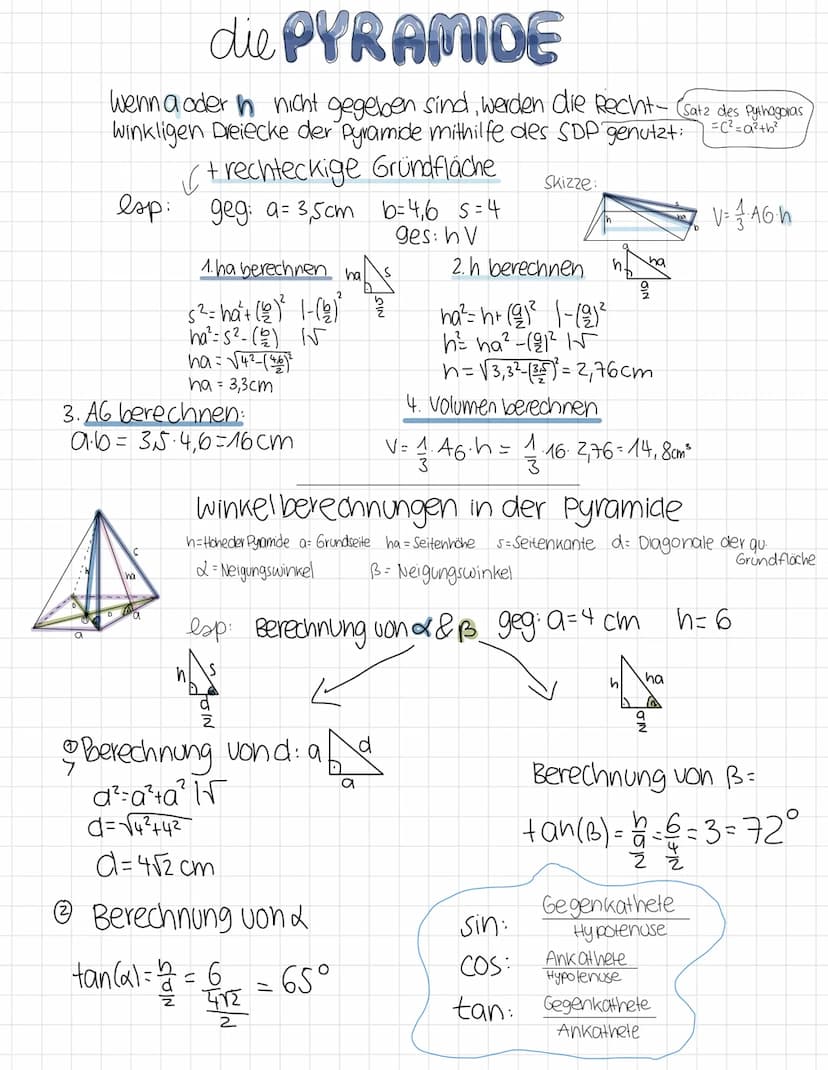 die PYRAMIDE
Wenn a oder h nicht gegeben sind, werden die Recht-
winkligen Dreiecke der Pyramide mithilfe des SDP genutzt:
Satz des Pythagoras
= c² = a² + b²
+ rechteckige Grundfläche
Skizze:
bsp: geg: a = 3,5cm b = 4,6 s = 4
ges: h V
h s ha b a
V = 1/3 · AG · h
1. ha berechnen
ha s b/2
s² = ha² + (b/2)² | - (b/2)²
ha² = s² - (b/2) | √
ha = √4² - (4,6/2)²
ha = 3,3cm
2. h berechnen
h ha a/2
ha² = h + (a/2)² | - (a/2)²
h² = ha² - (a/2)² | √
h = √3,3² - (3,5/2)² = 2,76cm
3. AG berechnen:
a · b = 3,5 · 4,6 = 16 cm
4. Volumen berechnen
V = 1/3 · AG · h = 1/3 · 16 · 2,76 = 14,8cm³
Winkelberechnungen in der Pyramide
h = Höhe der Pyramide a = Grundseite ha = Seitenhöhe s = Seitenkante d = Diagonale der qu. Grundfläche
α = Neigungswinkel β = Neigungswinkel
h s ha a a
bsp: Berechnung von α & β geg: a = 4 cm h = 6
h s d/2
h ha a/2
① Berechnung von d: a d a
d² = a² + a² | √
d = √4² + 4²
d = 4√2 cm
② Berechnung von α
tan(α) = h/(d/2) = 6/(4√2/2) = 65°
Berechnung von β =
tan(β) = h/(a/2) = 6/(4/2) = 3 = 72°
sin: Gegenkathete/Hypotenuse
cos: Ankathete/Hypotenuse
tan: Gegenkathete/Ankathete